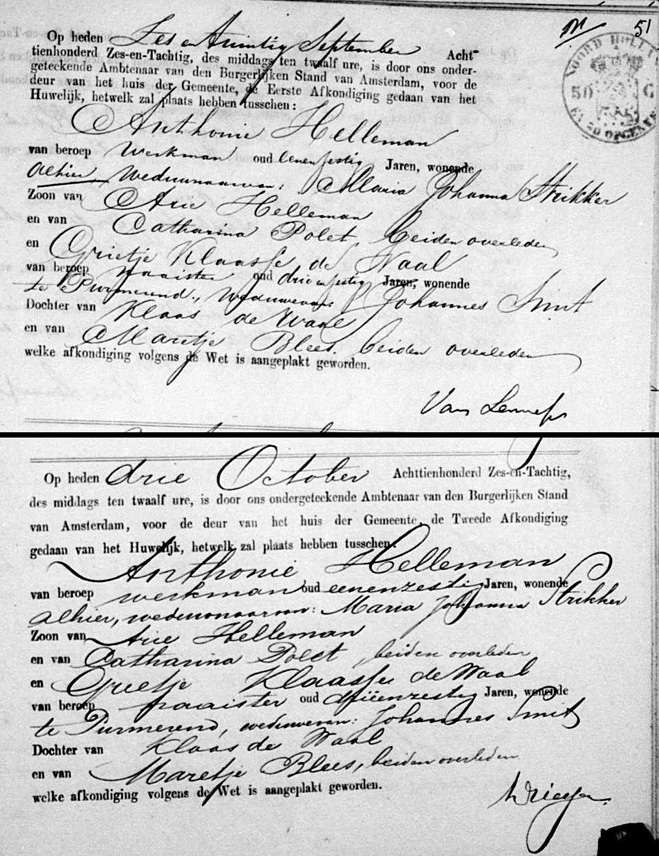 N 51
NOORD HOLLAND
50 C
Op heden Zes en twintig September Acht-
tienhonderd Zes-en-Tachtig, des middags ten twaalf ure, is door ons onder-
geteekende Ambtenaar van den Burgerlijken Stand van Amsterdam, voor de
deur van het huis der Gemeente, de Eerste Afkondiging gedaan van het
Huwelijk, hetwelk zal plaats hebben tusschen:
Anthonie Helleman
van beroep Werkman oud eenenzestig Jaren, wonende
alhier, Weduwnaar van: Maria Johanna Strikker
Zoon van Arie Helleman
en van Catharina Polet, beiden overleden
en Grietje Klaasse de Waal
van beroep naaister oud drieenzestig Jaren, wonende
te Purmerend, Weduwe van: Johannes Smit
Dochter van Klaas de Waal
en van Maretje Blees, beiden overleden
welke afkondiging volgens de Wet is aangeplakt geworden.
Van Lennep
Op heden drie October Achttienhonderd Zes-en-Tachtig,
des middags ten twaalf ure, is door ons ondergeteekende Ambtenaar van den Burgerlijken Stand
van Amsterdam, voor de deur van het huis der Gemeente, de Tweede Afkondiging
gedaan van het Huwelijk, hetwelk zal plaats hebben tusschen:
Anthonie Helleman
van beroep werkman oud eenenzestig Jaren, wonende
alhier, weduwnaar van: Maria Johanna Strikker
Zoon van Arie Helleman
en van Catharina Polet, beiden overleden
en Grietje Klaasse de Waal
van beroep naaister oud drieenzestig Jaren, wonende
te Purmerend, weduwe van: Johannes Smit
Dochter van Klaas de Waal
en van Maretje Blees, beiden overleden
welke afkondiging volgens de Wet is aangeplakt geworden.